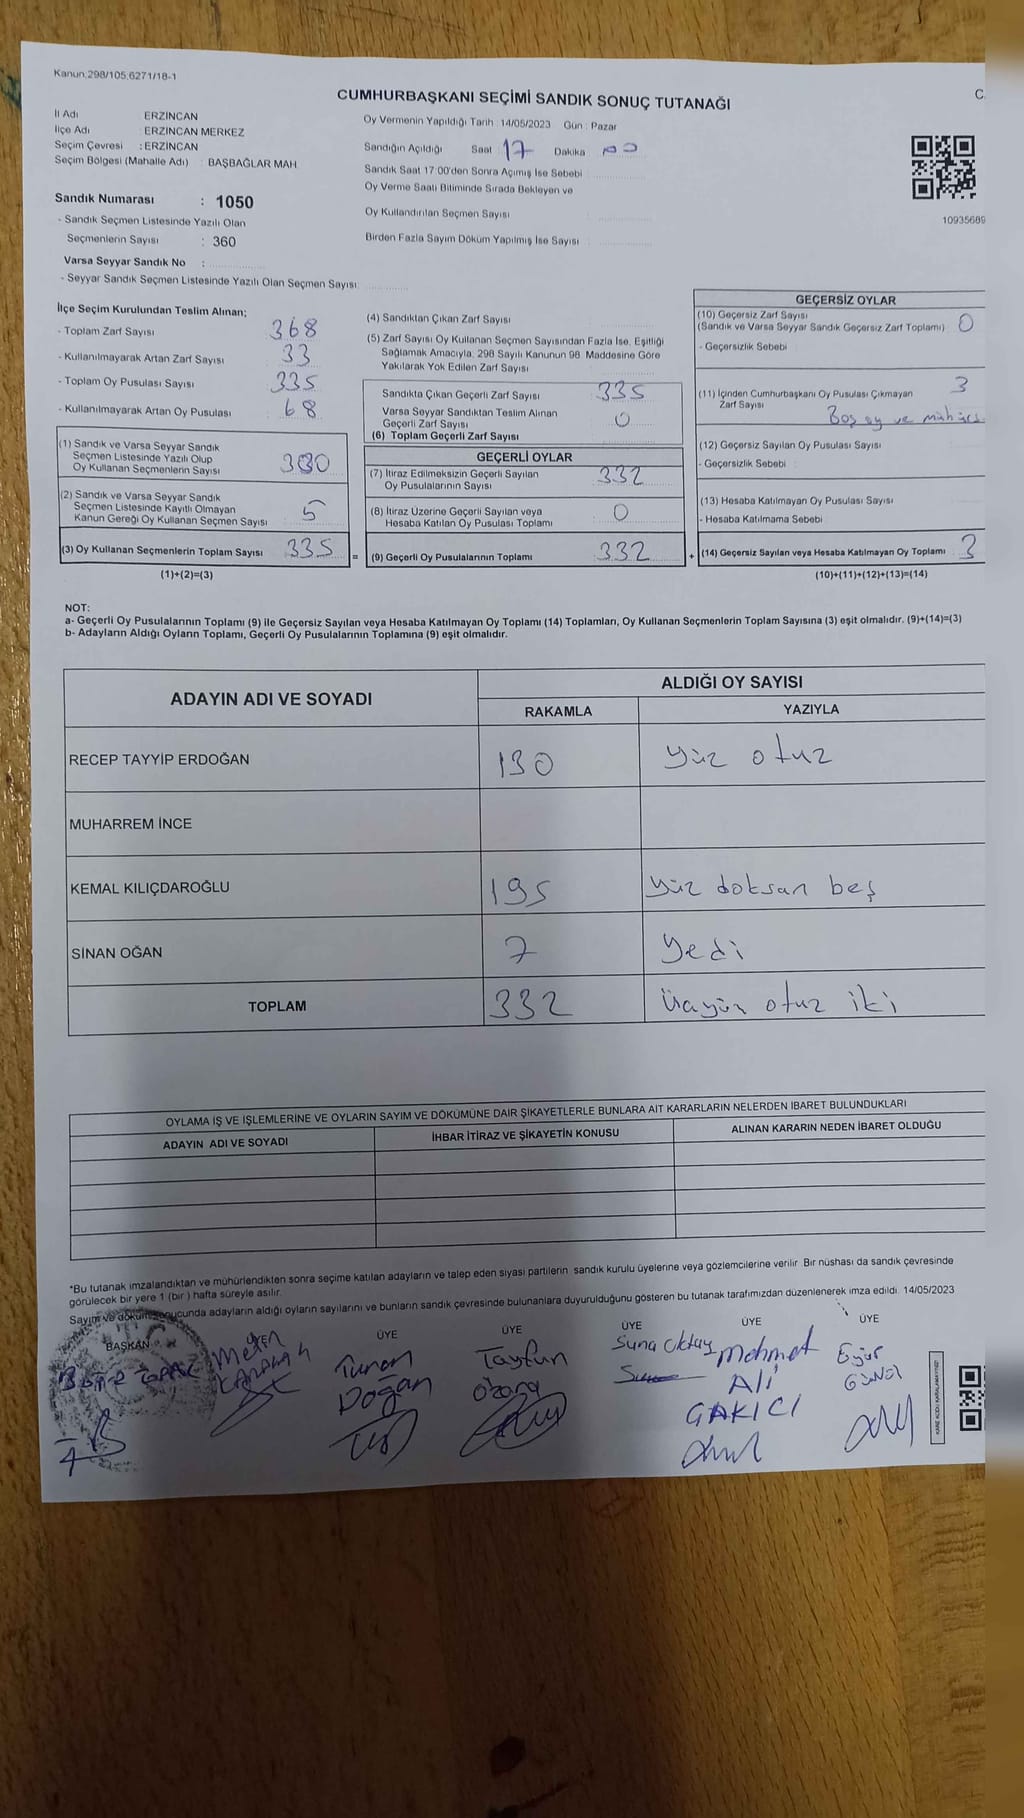 Kanun:298/105,6271/18-1
CUMHURBAŞKANI SEÇİMİ SANDIK SONUÇ TUTANAĞI
C.
İl Adı ERZİNCAN
İlçe Adı : ERZİNCAN MERKEZ
Seçim Çevresi : ERZİNCAN
Seçim Bölgesi (Mahalle Adı) : BAŞBAĞLAR MAH.
Sandık Numarası : 1050
- Sandık Seçmen Listesinde Yazılı Olan
Seçmenlerin Sayısı : 360
Varsa Seyyar Sandık No :
- Seyyar Sandık Seçmen Listesinde Yazılı Olan Seçmen Sayısı
Oy Vermenin Yapıldığı Tarih : 14/05/2023 Gün : Pazar
Sandığın Açıldığı Saat 17 Dakika
Sandık Saat 17:00'den Sonra Açımış İse Sebebi
Oy Verme Saati Bitiminde Sırada Bekleyen ve
Oy Kullandırılan Seçmen Sayısı
Birden Fazla Sayım Döküm Yapılmış İse Sayısı
10935689
İlçe Seçim Kurulundan Teslim Alınan;
- Toplam Zarf Sayısı 368
- Kullanılmayarak Artan Zarf Sayısı 33
- Toplam Oy Pusulası Sayısı 335
- Kullanılmayarak Artan Oy Pusulası 68
(1) Sandık ve Varsa Seyyar Sandık
Seçmen Listesinde Yazılı Olup
Oy Kullanan Seçmenlerin Sayısı 330
(2) Sandık ve Varsa Seyyar Sandık
Seçmen Listesinde Kayıtlı Olmayan
Kanun Gereği Oy Kullanan Seçmen Sayısı 5
(3) Oy Kullanan Seçmenlerin Toplam Sayısı 335
=
(1)+(2)=(3)
(4) Sandıktan Çıkan Zarf Sayısı
(5) Zarf Sayısı Oy Kullanan Seçmen Sayısından Fazla İse, Eşitliği
Sağlamak Amacıyla, 298 Sayılı Kanunun 98. Maddesine Göre
Yakılarak Yok Edilen Zarf Sayısı
Sandıkta Çıkan Geçerli Zarf Sayısı 335
Varsa Seyyar Sandıktan Teslim Alınan
Geçerli Zarf Sayısı 0
(6) Toplam Geçerli Zarf Sayısı
GEÇERLİ OYLAR
(7) İtiraz Edilmeksizin Geçerli Sayılan
Oy Pusulalarının Sayısı 332
(8) İtiraz Üzerine Geçerli Sayılan veya
Hesaba Katılan Oy Pusulası Toplamı 0
(9) Geçerli Oy Pusulalarının Toplamı 332
+
GEÇERSİZ OYLAR
(10) Geçersiz Zarf Sayısı
(Sandık ve Varsa Seyyar Sandık Geçersiz Zarf Toplamı) 0
- Geçersizlik Sebebi
(11) İçinden Cumhurbaşkanı Oy Pusulası Çıkmayan
Zarf Sayısı 3
Boş oy ve
(12) Geçersiz Sayılan Oy Pusulası Sayısı
- Geçersizlik Sebebi
(13) Hesaba Katılmayan Oy Pusulası Sayısı
- Hesaba Katılmama Sebebi
(14) Geçersiz Sayılan veya Hesaba Katılmayan Oy Toplamı 3
(10)+(11)+(12)+(13)=(14)
NOT:
a- Geçerli Oy Pusulalarının Toplamı (9) ile Geçersiz Sayılan veya Hesaba Katılmayan Oy Toplamı (14) Toplamları, Oy Kullanan Seçmenlerin Toplam Sayısına (3) eşit olmalıdır. (9)+(14)=(3)
b- Adayların Aldığı Oyların Toplamı, Geçerli Oy Pusulalarının Toplamına (9) eşit olmalıdır.
ADAYIN ADI VE SOYADI
ALDIĞI OY SAYISI
RAKAMLA YAZIYLA
RECEP TAYYİP ERDOĞAN 130 yüz otuz
MUHARREM İNCE
KEMAL KILIÇDAROĞLU 195 yüz doksan beş
SİNAN OĞAN 7 yedi
TOPLAM 332 otuz iki
OYLAMA İŞ VE İŞLEMLERİNE VE OYLARIN SAYIM VE DÖKÜMÜNE DAİR ŞİKAYETLERLE BUNLARA AİT KARARLARIN NELERDEN İBARET BULUNDUKLARI
ADAYIN ADI VE SOYADI İHBAR İTİRAZ VE ŞİKAYETİN KONUSU ALINAN KARARIN NEDEN İBARET OLDUĞU
*Bu tutanak imzalandıktan ve mühürlendikten sonra seçime katılan adayların ve talep eden siyasi partilerin sandık kurulu üyelerine veya gözlemcilerine verilir. Bir nüshası da sandık çevresinde
görülecek bir yere 1 (bir) hafta süreyle asılır.
Sayım ve döküm sonucunda adayların aldığı oyların sayılarını ve bunların sandık çevresinde bulunanlara duyurulduğunu gösteren bu tutanak tarafımızdan düzenlenerek imza edildi. 14/05/2023
BAŞKAN ÜYE ÜYE ÜYE ÜYE ÜYE
Metin
Turan
Doğan
Tayfun
Suna Oktay
Mehmet
Ali
GAKICI
Eyüp